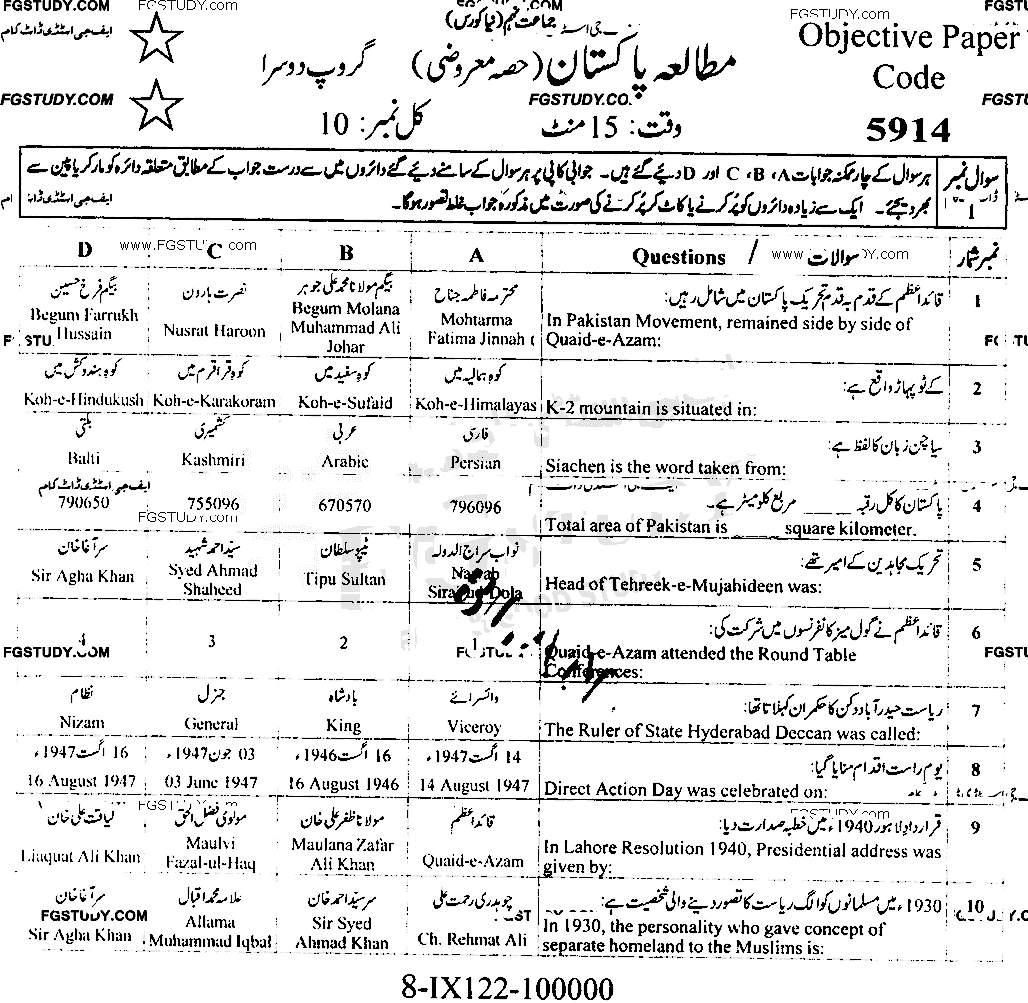 FGSTUDY.COM
ایف جی اسٹڈی ڈاٹ کام
جماعت نہم (نیا کورس)
FGSTUDY.COM
Objective Paper
Code
5914
مطالعہ پاکستان (حصہ معروضی) گروپ دوسرا
FGSTUDY.COM
FGSTUDY.CO.
وقت: 15 منٹ کل نمبر: 10
سوال نمبر 1
ہر سوال کے چار ممکنہ جوابات A، B، C اور D دیئے گئے ہیں۔ جوابی کاپی پر ہر سوال کے سامنے دیئے گئے دائروں میں سے درست جواب کے مطابق متعلقہ دائرہ کو مارکر یا پین سے
بھر دیجئے۔ ایک سے زیادہ دائروں کو پُر کرنے یا کاٹ کر پُر کرنے کی صورت میں مذکورہ جواب غلط تصور ہوگا۔
نمبر شمار Questions / سوالات A B C D
www.FGSTUDY.com
1 قائداعظم کے قدم بہ قدم تحریک پاکستان میں شامل رہیں:
In Pakistan Movement, remained side by side of
Quaid-e-Azam:
محترمہ فاطمہ جناح
Mohtarma
Fatima Jinnah
بیگم مولانا محمد علی جوہر
Begum Molana
Muhammad Ali
Johar
نصرت ہارون
Nusrat Haroon
بیگم فرخ حسین
Begum Farrukh
Hussain
2 کے ٹو پہاڑ واقع ہے:
K-2 mountain is situated in:
کوہ ہمالیہ میں
Koh-e-Himalayas
کوہ سفید میں
Koh-e-Sufaid
کوہ قراقرم میں
Koh-e-Karakoram
کوہ ہندوکش میں
Koh-e-Hindukush
3 سیاچن زبان کا لفظ ہے:
Siachen is the word taken from:
فارسی
Persian
عربی
Arabic
کشمیری
Kashmiri
بلتی
Balti
4 پاکستان کا کل رقبہ ____ مربع کلومیٹر ہے۔
Total area of Pakistan is ____ square kilometer.
796096
670570
755096
ایف جی اسٹڈی ڈاٹ کام
790650
FGSTUDY.com
5 تحریک مجاہدین کے امیر تھے:
Head of Tehreek-e-Mujahideen was:
نواب سراج الدولہ
Nawab
Siraj-ud-Dola
ٹیپو سلطان
Tipu Sultan
سید احمد شہید
Syed Ahmad
Shaheed
سر آغا خان
Sir Agha Khan
6 قائداعظم نے گول میز کانفرنسوں میں شرکت کی:
Quaid-e-Azam attended the Round Table
Conferences:
1
2
3
4
FGSTUDY.COM
7 ریاست حیدر آباد دکن کا حکمران کہلاتا تھا:
The Ruler of State Hyderabad Deccan was called:
وائسرائے
Viceroy
بادشاہ
King
جنرل
General
نظام
Nizam
8 یوم راست اقدام منایا گیا:
Direct Action Day was celebrated on:
14 اگست 1947ء
14 August 1947
16 اگست 1946ء
16 August 1946
03 جون 1947ء
03 June 1947
16 اگست 1947ء
16 August 1947
9 قرارداد لاہور 1940ء میں خطبہ صدارت دیا:
In Lahore Resolution 1940, Presidential address was
given by:
قائداعظم
Quaid-e-Azam
مولانا ظفر علی خان
Maulana Zafar
Ali Khan
مولوی فضل الحق
Maulvi
Fazal-ul-Haq
لیاقت علی خان
Liaquat Ali Khan
10 1930ء میں مسلمانوں کو الگ ریاست کا تصور دینے والی شخصیت ہے:
In 1930, the personality who gave concept of
separate homeland to the Muslims is:
چوہدری رحمت علی
Ch. Rehmat Ali
سر سید احمد خان
Sir Syed
Ahmad Khan
علامہ محمد اقبال
Allama
Muhammad Iqbal
سر آغا خان
FGSTUDY.COM
Sir Agha Khan
8-IX122-100000